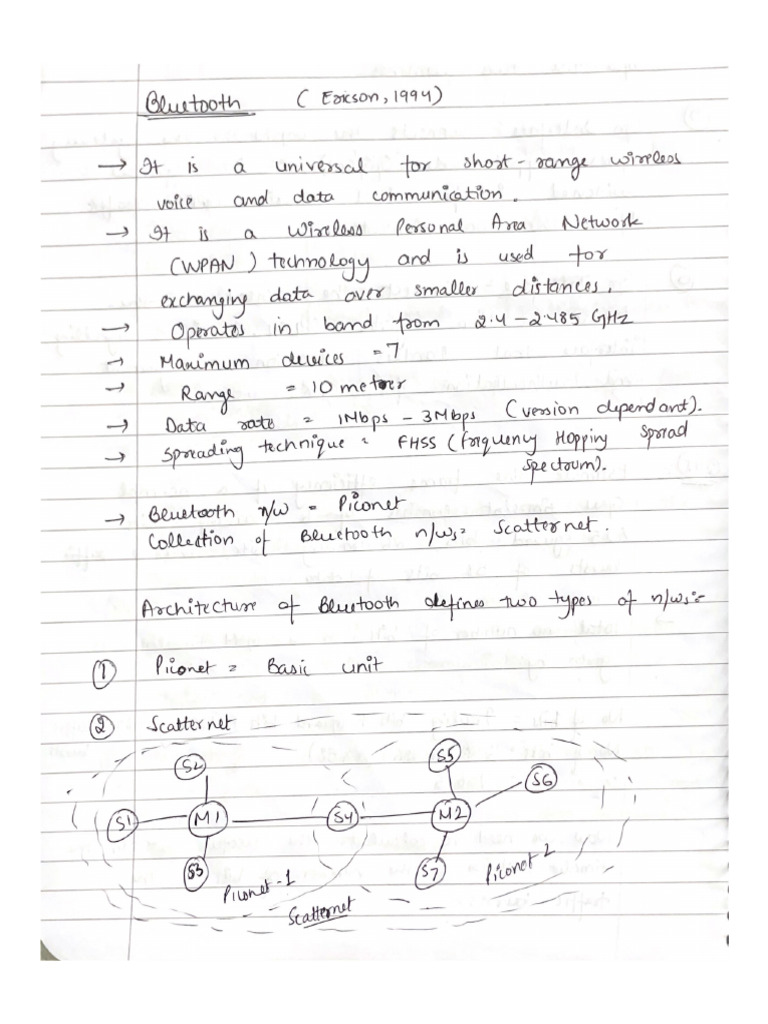 Bluetooth ( Erikson, 1994)
→ It is a universal for short-range wireless
voice and data communication.
→ It is a Wireless Personal Area Network
(WPAN) technology and is used for
exchanging data over smaller distances.
→ Operates in band from 2.4 - 2.485 GHz
→ Maximum devices = 7
→ Range = 10 meter
→ Data rate = 1Mbps - 3Mbps (version dependant).
→ Spreading technique = FHSS (Frequency Hopping Spread
Spectrum).
→ Bluetooth n/w = Piconet
Collection of Bluetooth n/ws = Scatternet.
Architecture of Bluetooth defines two types of n/ws:-
① Piconet = Basic unit
② Scatternet
S2 S5 S6
S1 M1 S4 M2
S3 Piconet-1 S7 Piconet 2
Scatternet